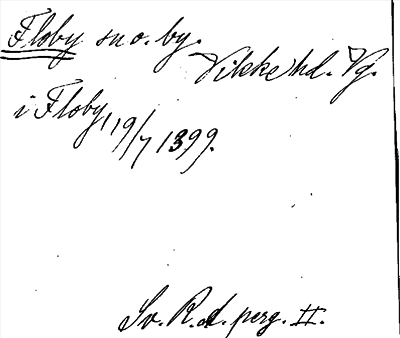 Floby sn o. by.
Vilske hd. Vg.
i Floby, 19/7 1399.
Sv. R. A. perg. II.